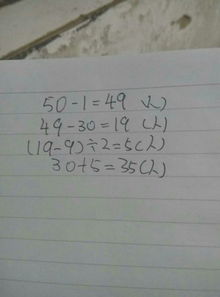 50-1=49 人)
49-30=19 (人)
(19-9)÷2=5(人)
30+5=35(人)